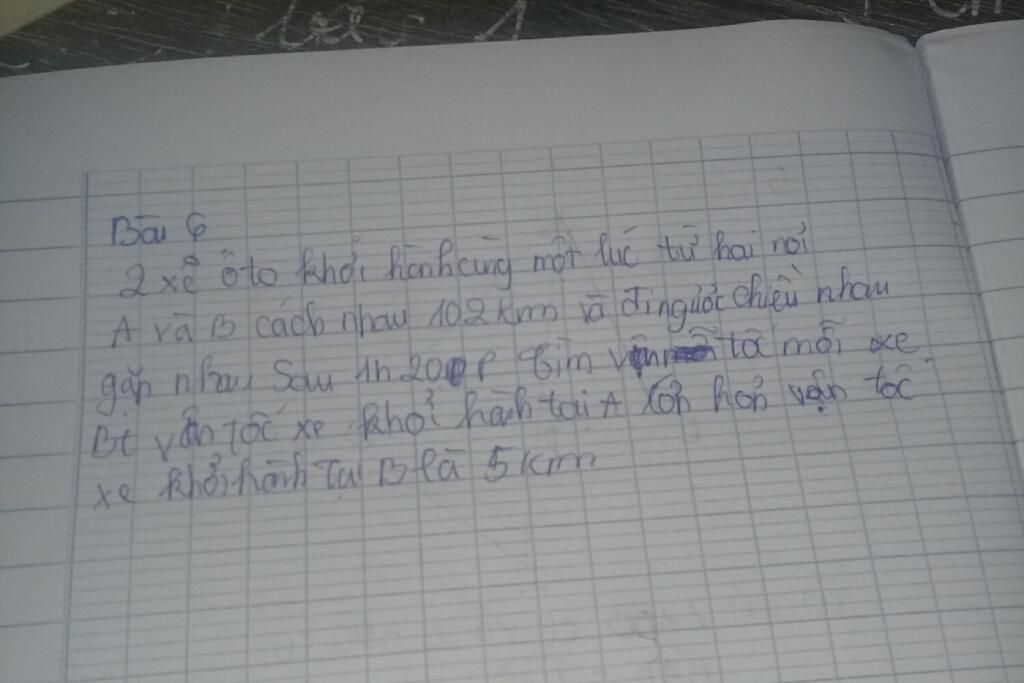 Bài 6
2 xe ôto khởi hành cùng một lúc từ hai nơi
A và B cách nhau 102km và đi ngược chiều nhau
gặp nhau sau 1h 20 p tìm vận tốc mỗi xe.
Bt vận tốc xe khởi hành tại A lớn hơn vận tốc
xe khởi hành tại B là 5km